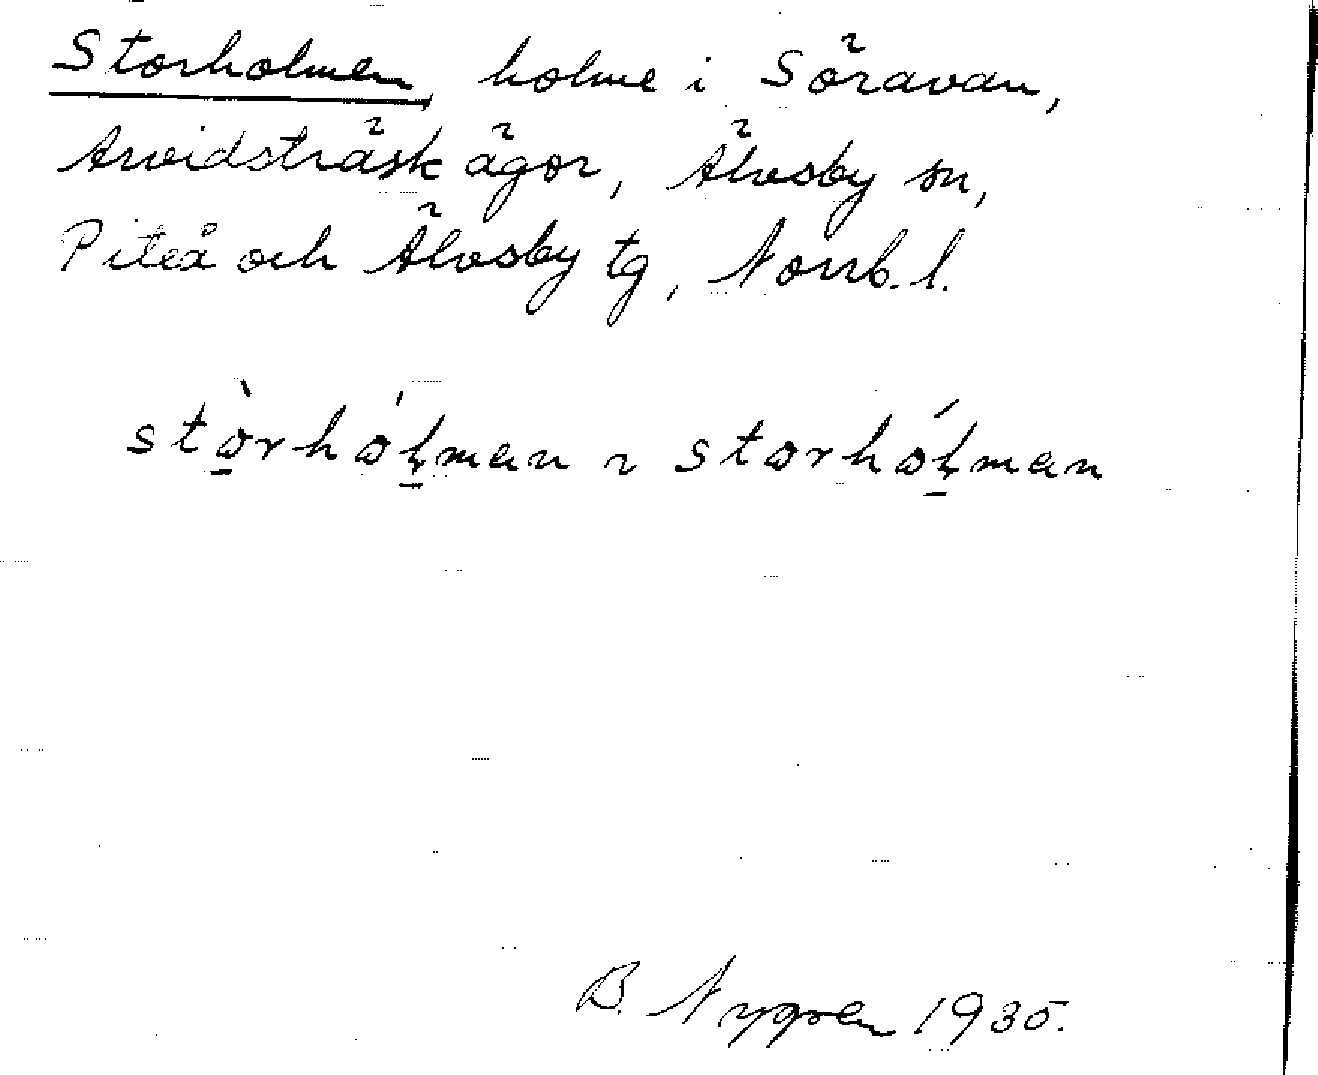 Storholmen, holme i Söravan,
Arvidsträsk ägor, Älvsby sn,
Piteå och Älvsby tg, Norrb. l.
stò̱rhóḻman ~ storhóḻman
B. Nygren 1930.